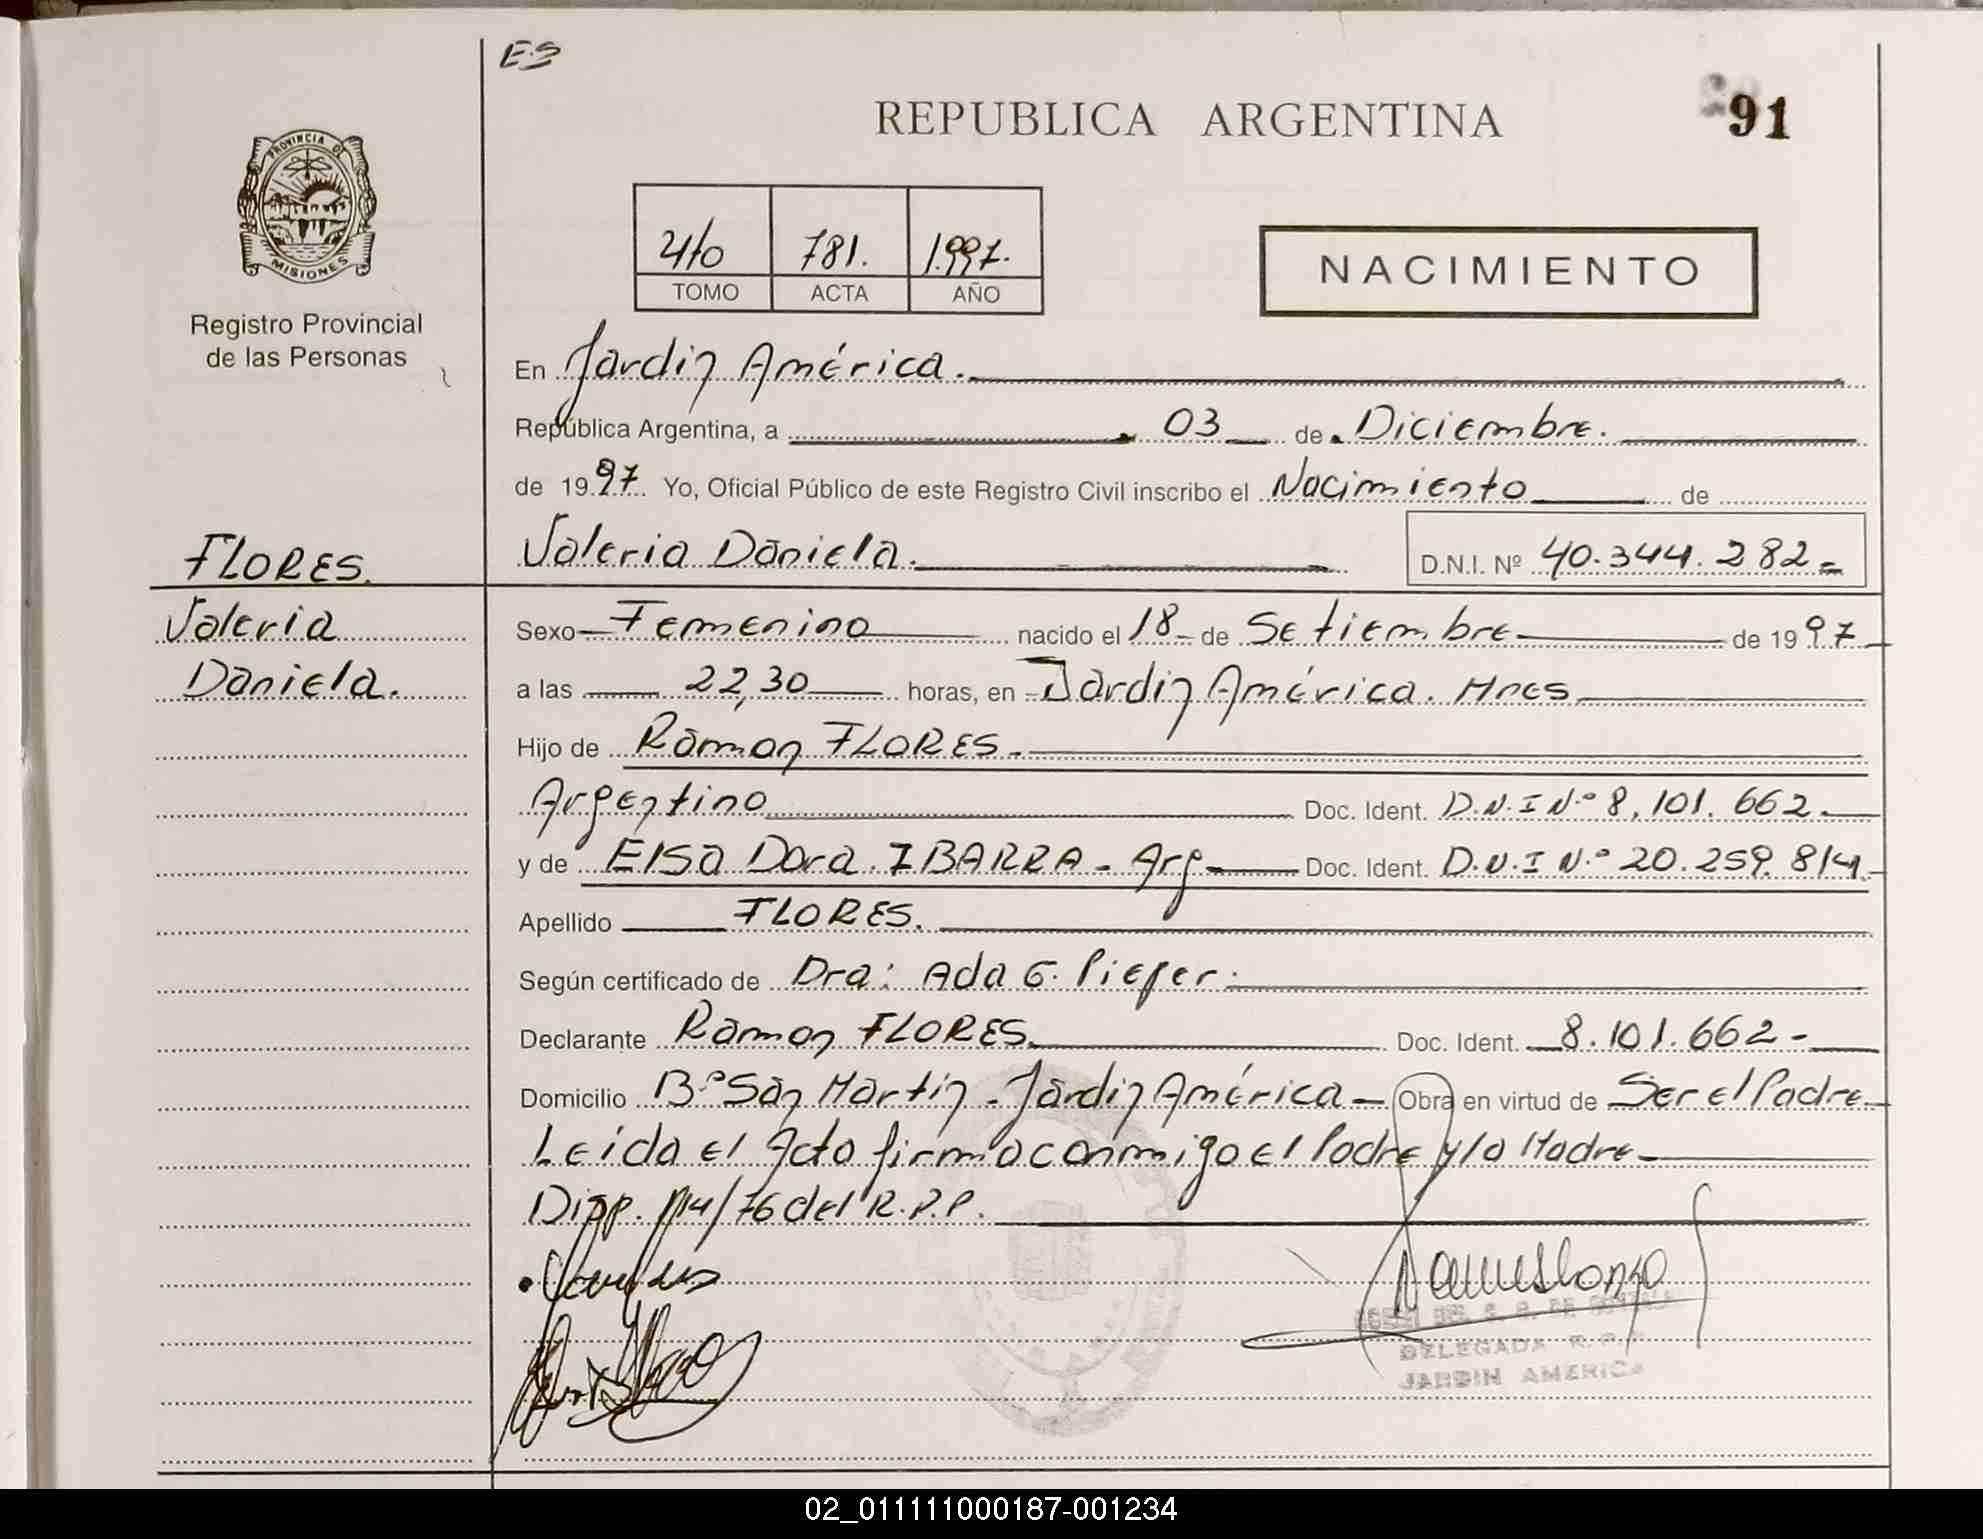 ES
REPUBLICA ARGENTINA
91
PROVINCIA DE
MISIONES
Registro Provincial
de las Personas
4to 781. 1.997.
TOMO ACTA AÑO
NACIMIENTO
En Jardin América.
República Argentina, a 03 de Diciembre.
de 1997 Yo, Oficial Público de este Registro Civil inscribo el Nacimiento de
FLORES.
Valeria Daniela. D.N.I. Nº 40.344.282-
Valeria
Daniela.
Sexo Femenino nacido el 18 de Setiembre de 1997
a las 22,30 horas, en Jardin América. Mnes
Hijo de Ramon FLORES.
Argentino Doc. Ident. D.N.I Nº 8.101.662.
y de Elsa Dora IBARRA - Arg Doc. Ident. D.N.I Nº 20.259.814.
Apellido FLORES.
Según certificado de Dra: Ada G.
Declarante Ramon FLORES. Doc. Ident. 8.101.662-
Domicilio Bº San Martin - Jardin América - Obra en virtud de Ser el Padre
Leida el Acta firma conmigo el Padre y la Madre
Disp. 114/76 del R.P.P.
DELEGADA R.P.P.
JARDIN AMERICA
02_011111000187-001234